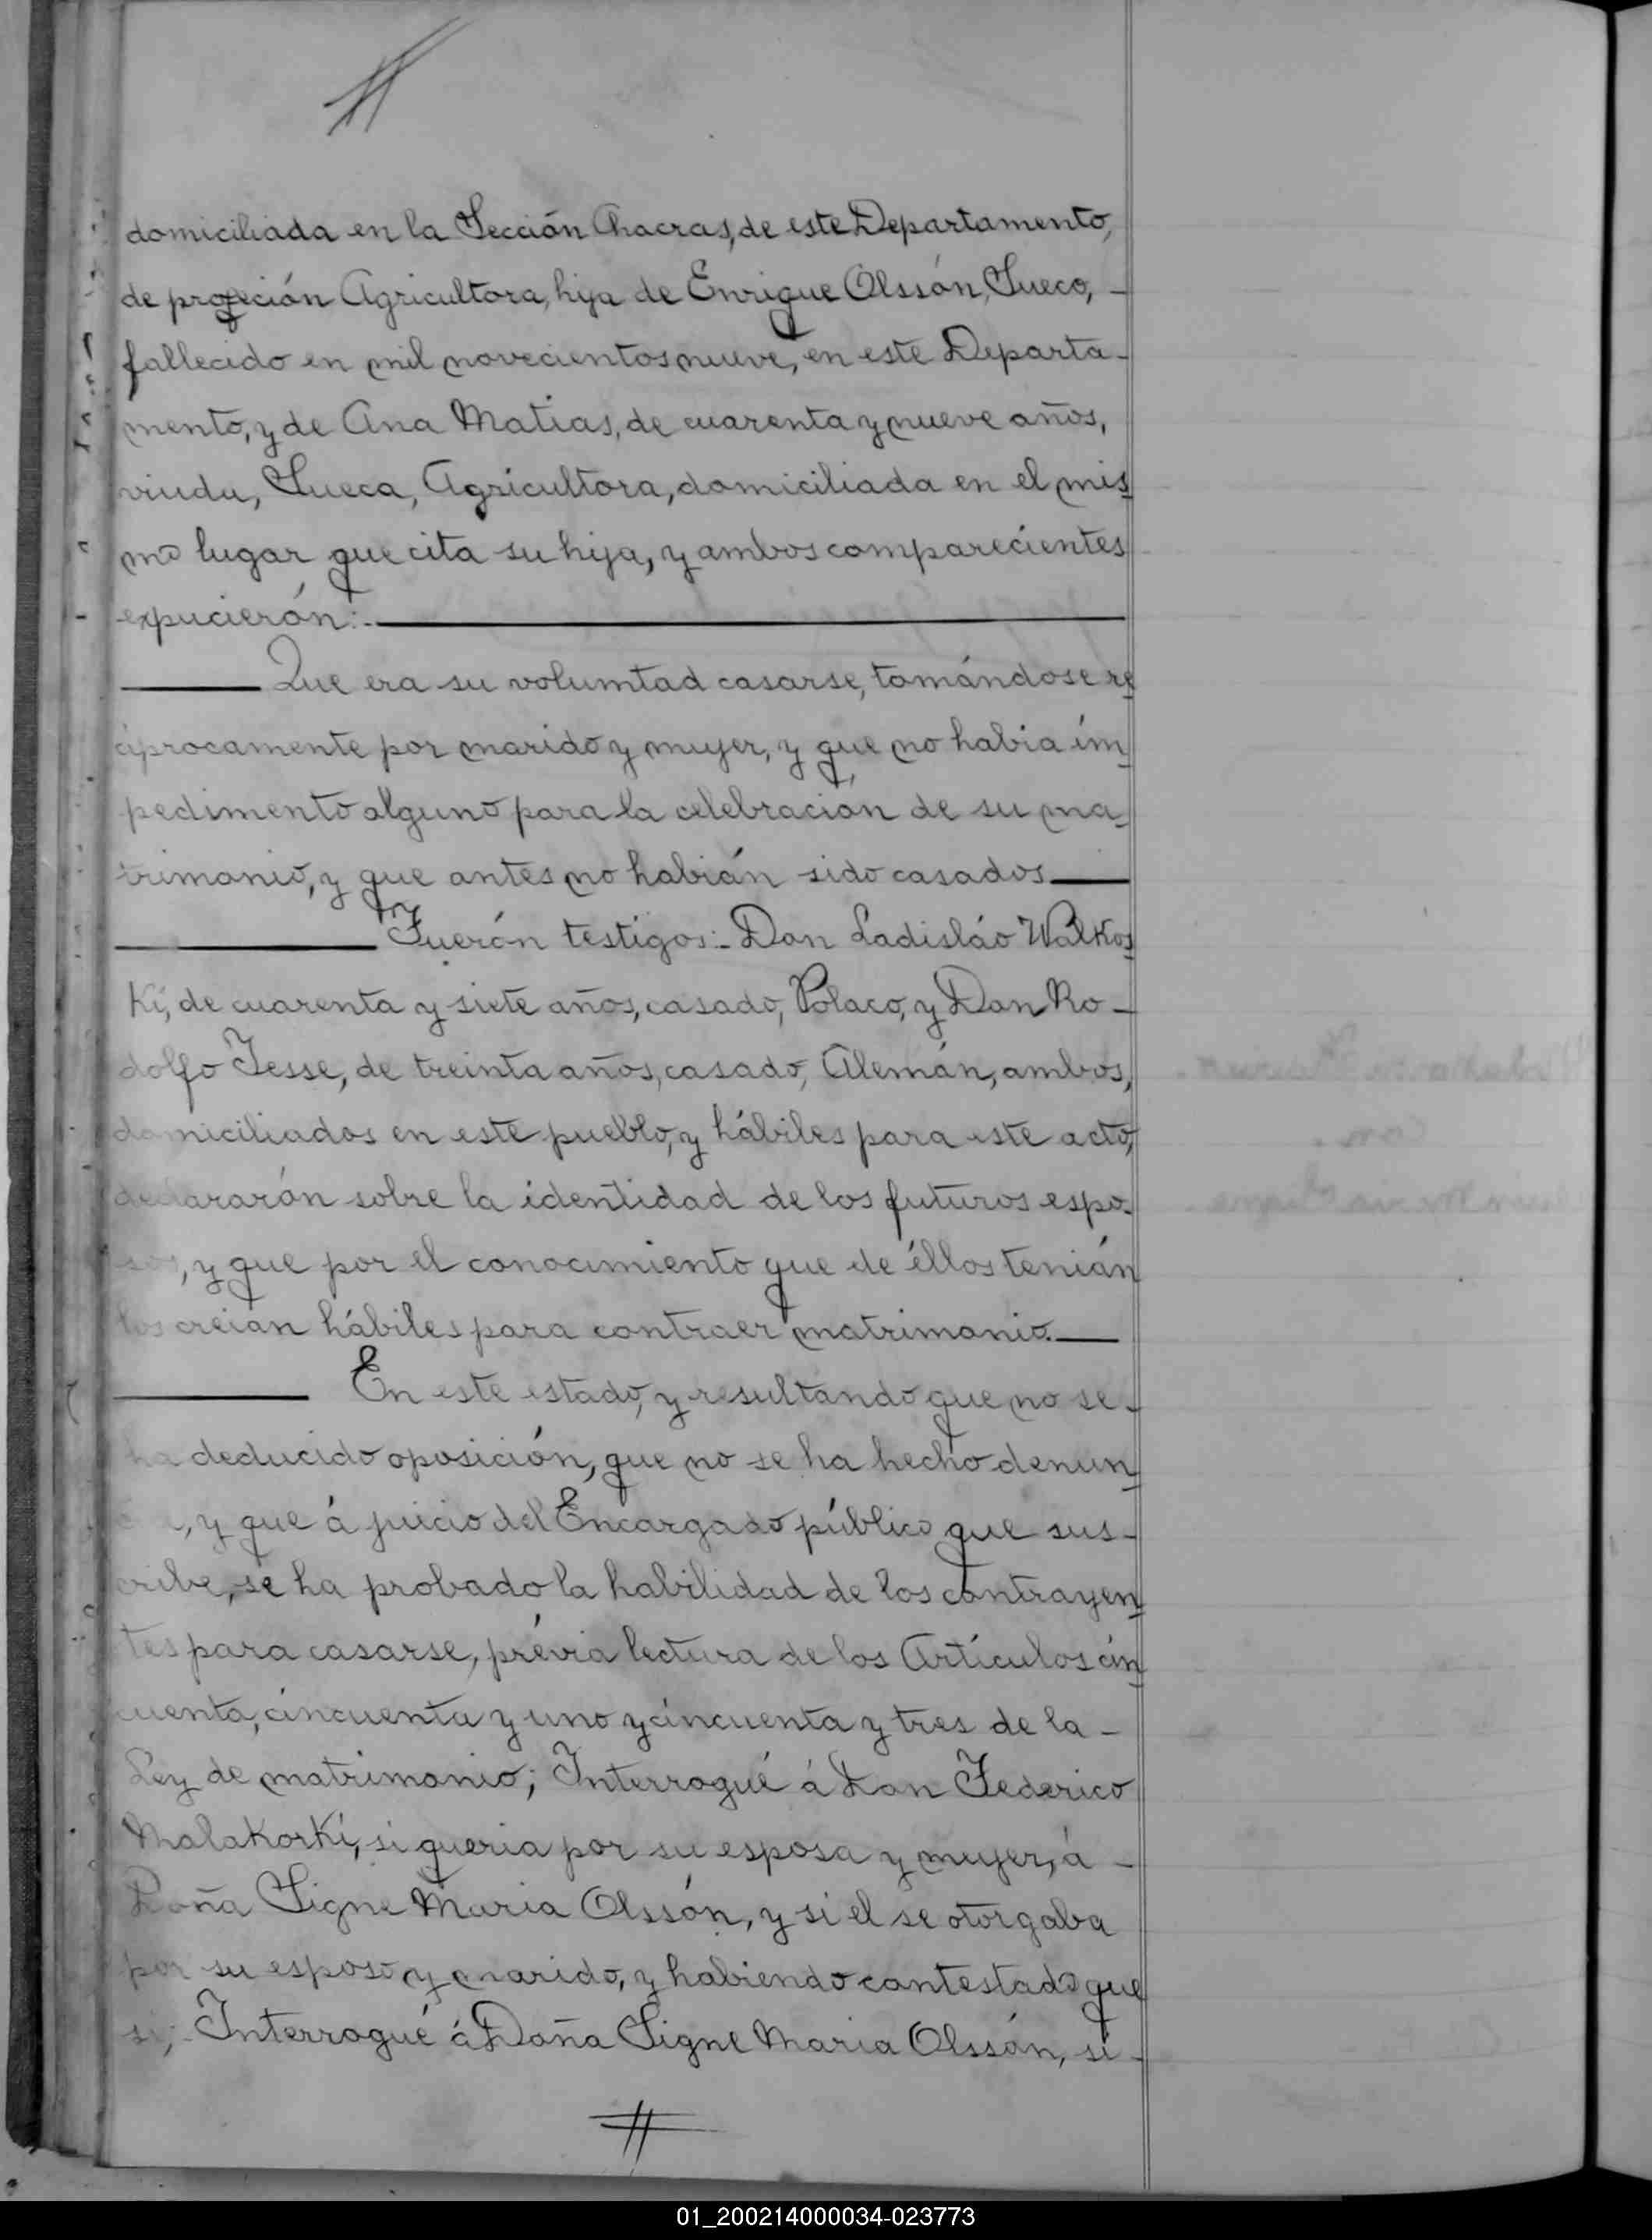 domiciliada en la Sección Chacras, de este Departamento,
de profeción Agricultora, hija de Enrique Olssón, Sueco, -
fallecido en mil novecientos nueve, en este Departa-
mento, y de Ana Matias, de cuarenta y nueve años,
viuda, Sueca, Agricultora, domiciliada en el mis
mo lugar que cita su hija, y ambos comparecientes
expucierón:-
Que era su volumtad casarse, tomándose re
ciprocamente por marido y mujer, y que no habia im
pedimento alguno para la celebración de su ma
trimonio, y que antes no habián sido casados
Fuerón testigos:- Don Ladisláo Walkos
ki, de cuarenta y siete años, casado, Polaco, y Don Ro-
dolfo Jesse, de treinta años, casado, Alemán, ambos,
domiciliados en este pueblo, y hábiles para este acto,
declararón sobre la identidad de los futuros espo-
sos, y que por el conocimiento que de éllos tenián
los creian hábiles para contraer matrimonio.
En este estado, y resultando que no se-
ha deducido oposición, que no se ha hecho denun
cia, y que á juicio del Encargado público que sus-
cribe, se ha probado la habilidad de los contrayen
tes para casarse, prévia lectura de los Artículos cin
cuenta, cincuenta y uno y cincuenta y tres de la -
Ley de matrimonio; Interrogué á Don Federico
Malakorki, si queria por su esposa y mujer, á -
Doña Signe Maria Olssón, y si el se otorgaba
por su esposo y marido, y habiendo contestado que
si; Interrogué á Doña Signe Maria Olssón, si-
01_200214000034-023773